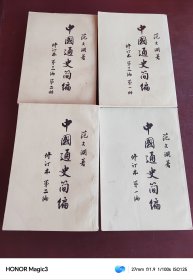 范文瀾著
中國通史简编
修订本 第三编 第二册
范文瀾著
中國通史简编
修订本 第三编 第一册
范文瀾著
中國通史简编
修订本 第二编
范文瀾著
中國通史简编
修订本 第一编
HONOR Magic3
27mm f/1.9 1/100s ISO125